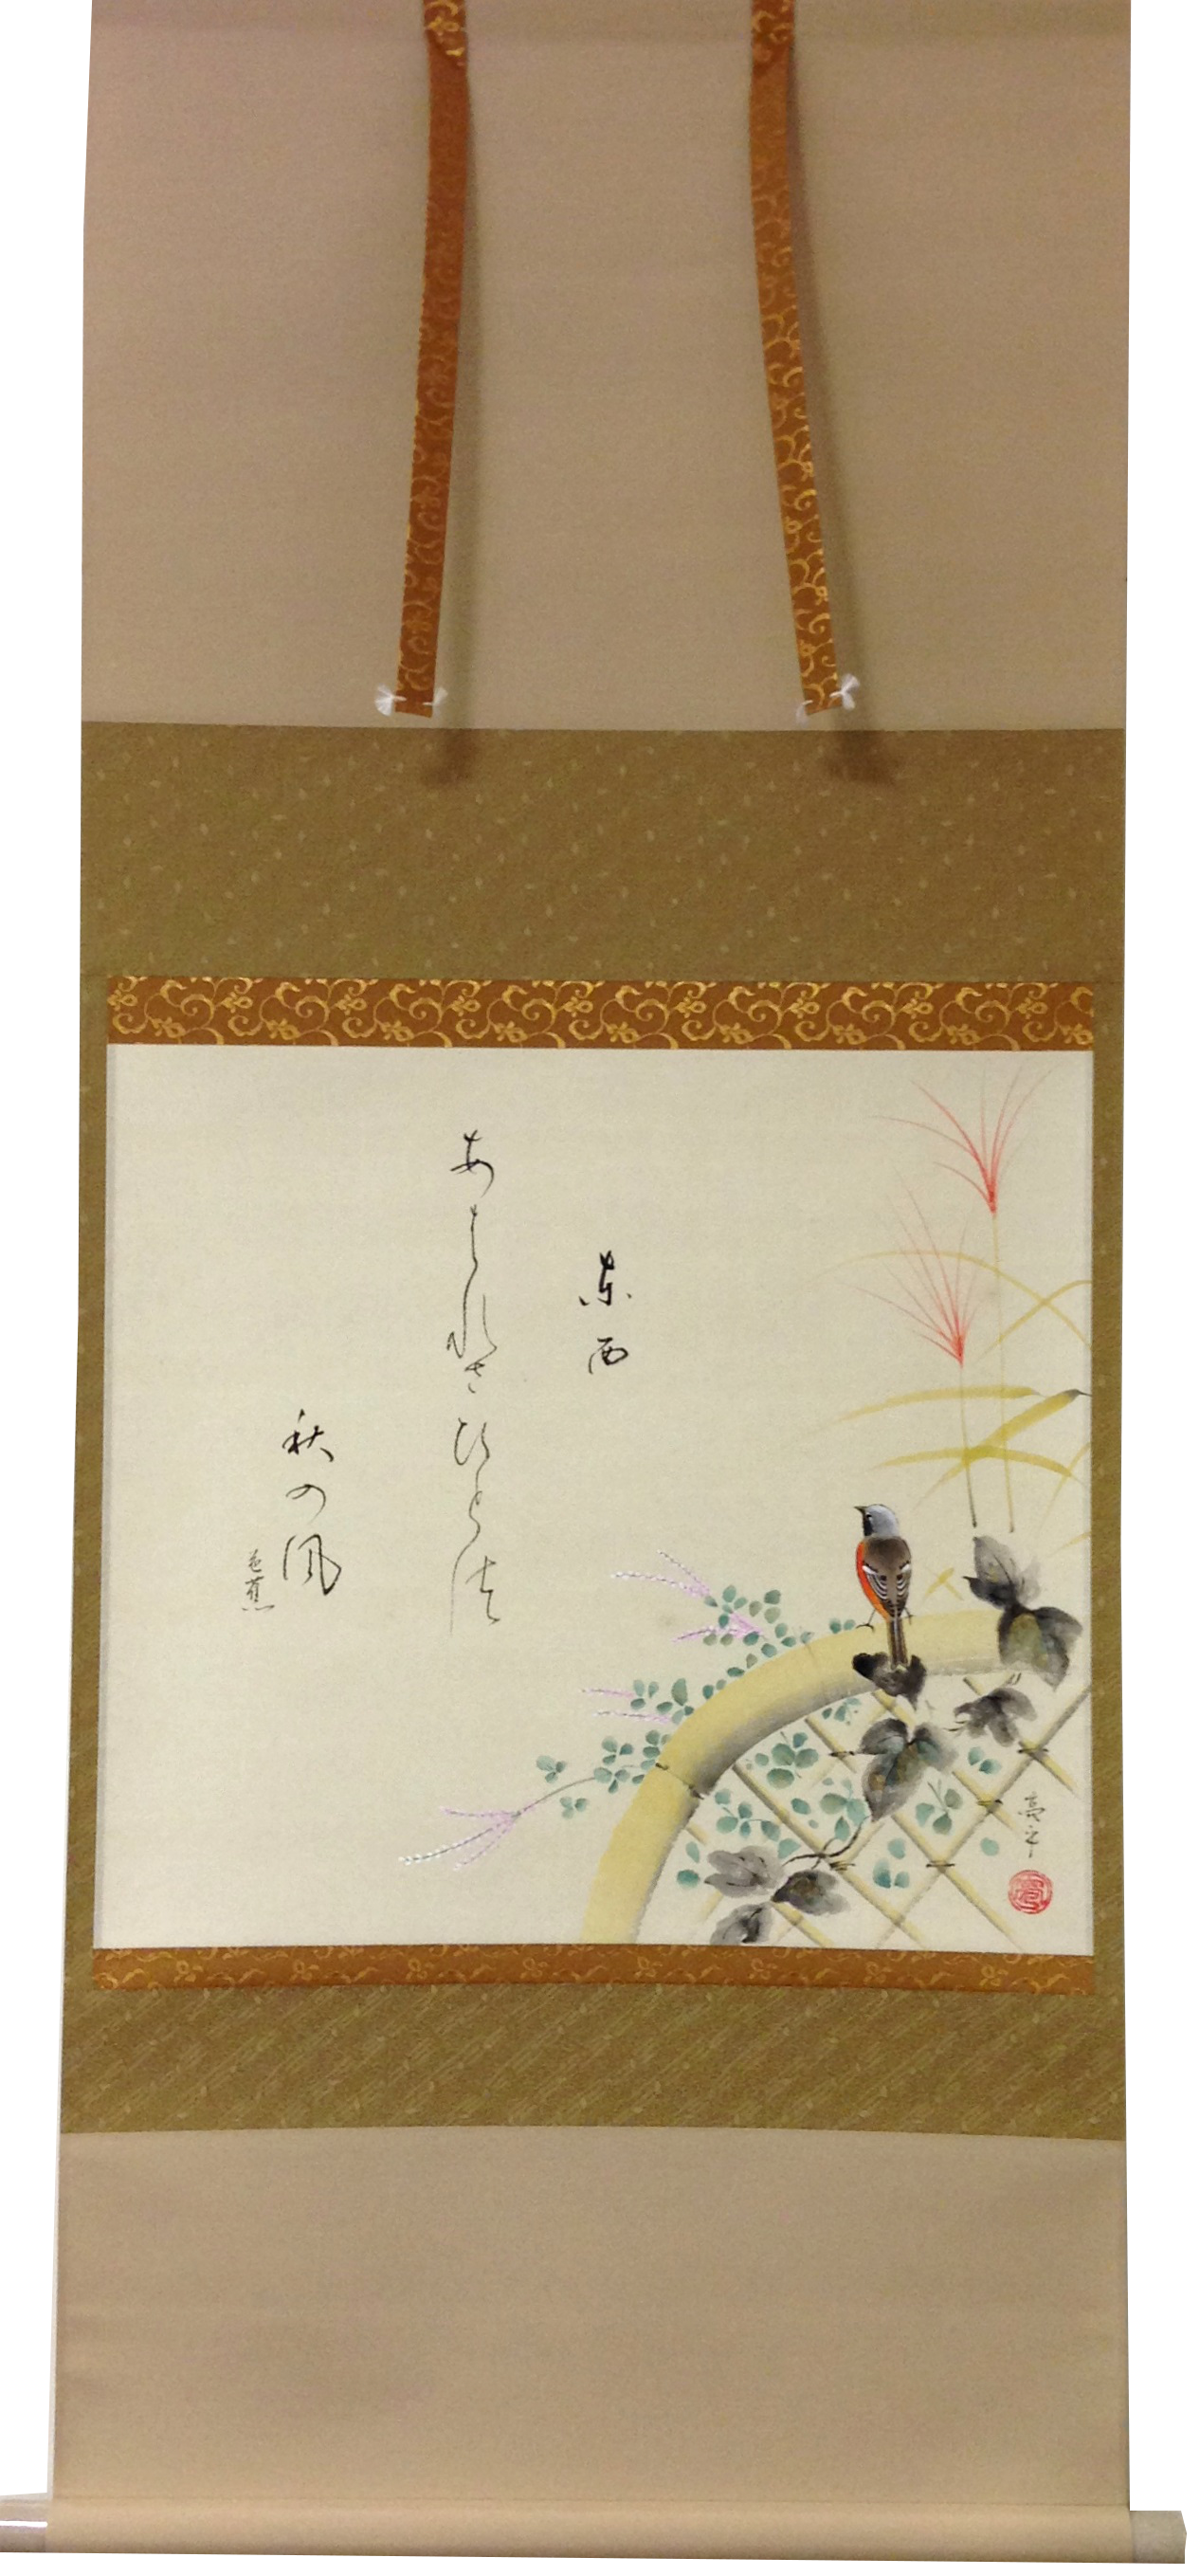 東西
あはれさひとつ
秋の風
芭蕉